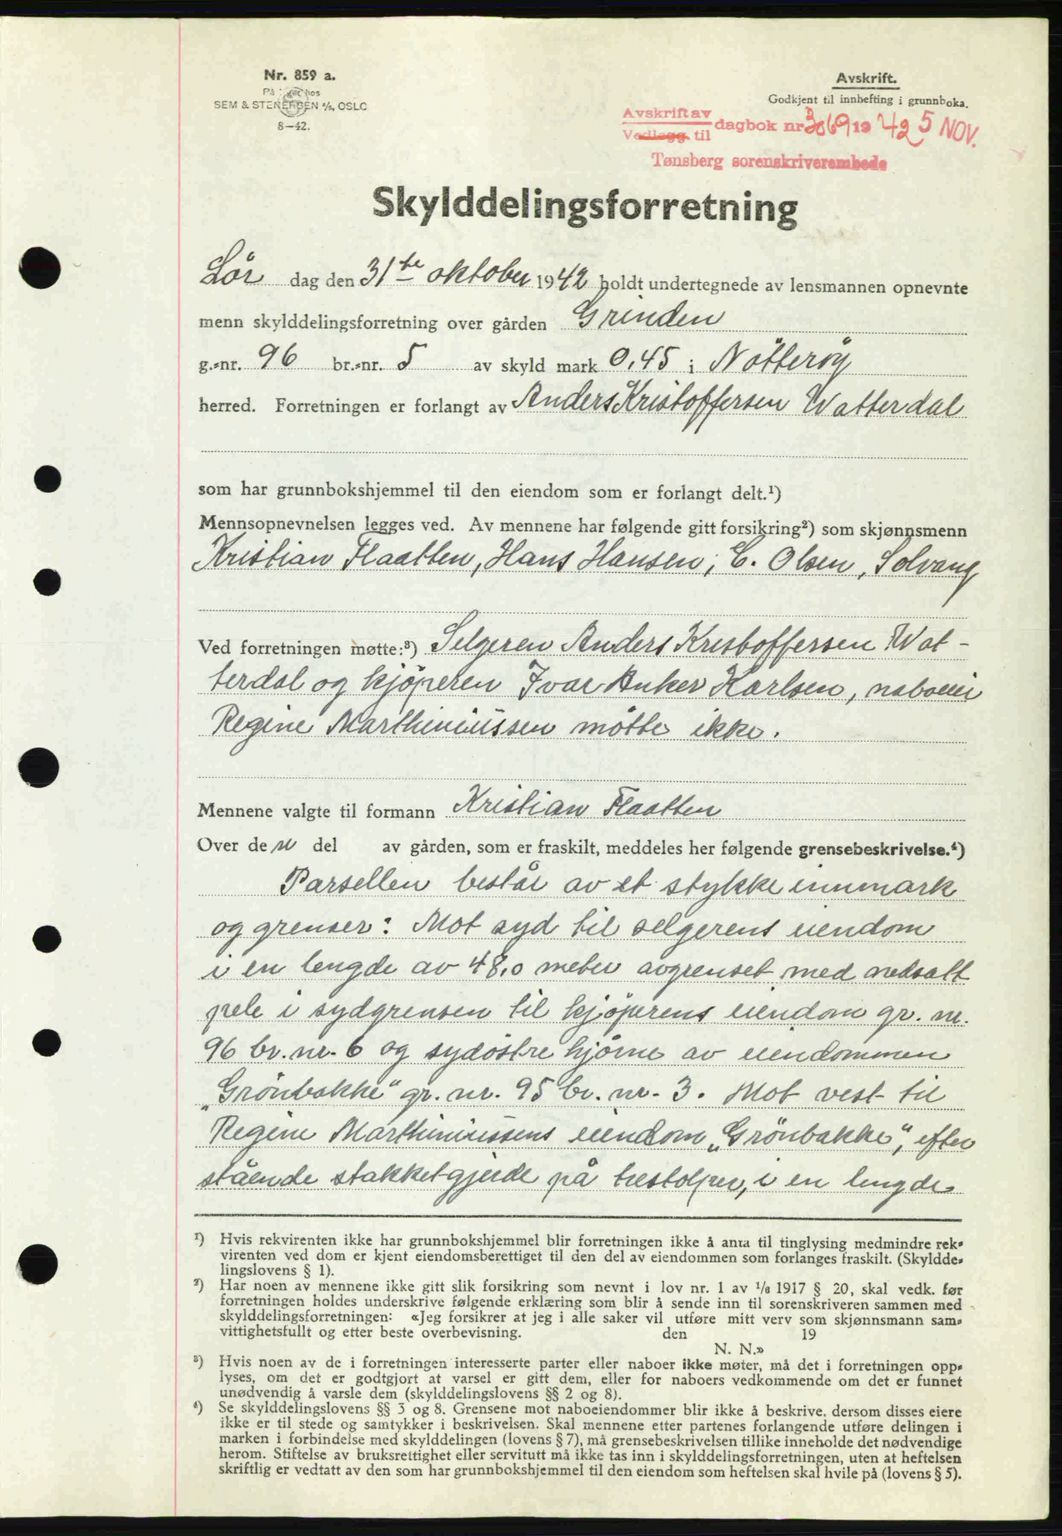 Nr. 859 a.
SEM & STENERSEN A/S, OSLO
8—42.
Avskrift.
Godkjent til innhefting i grunnboka.
Avskrift av
Vedlegg til dagbok nr 3069 1942 5 NOV.
Tønsberg sorenskriverembede
Skylddelingsforretning
Lör dag den 31te oktober 1942 holdt undertegnede av lensmannen opnevnte
menn skylddelingsforretning over gården Grinden
g.-nr. 96 br.-nr. 5 av skyld mark 0,45 i Nötteröy
herred. Forretningen er forlangt av Anders Kristoffersen Watterdal
som har grunnbokshjemmel til den eiendom som er forlangt delt.¹)
Mennsopnevnelsen legges ved. Av mennene har følgende gitt forsikring²) som skjønnsmenn
Kristian Flaatten, Hans Hansen, C. Olsen, Solvang
Ved forretningen møtte:³) Selgeren Anders Kristoffersen Wat-
terdal og kjöperen Ivar Anker Karlsen, naboen
Regine Marthiniussen mötte ikke.
Mennene valgte til formann Kristian Flaatten
Over den del av gården, som er fraskilt, meddeles her følgende grensebeskrivelse.⁴)
Parsellen består av et stykke innmark
og grenser: Mot syd til selgerens eiendom
i en lengde av 48,0 meter avgrenset med nedsatt
pele i sydgrensen til kjöperens eiendom gr. nr.
96 br. nr. 6 og sydöstre hjörne av eiendommen
„Grönbakke" gr. nr. 95 br. nr. 3. Mot vest til
Regine Marthiniussens eiendom „Grönbakke", efter
stående stakketgjerde på trestolper, i en lengde
¹) Hvis rekvirenten ikke har grunnbokshjemmel blir forretningen ikke å anta til tinglysing medmindre rek-
virenten ved dom er kjent eiendomsberettiget til den del av eiendommen som forlanges fraskilt. (Skyldde-
lingslovens § 1).
²) Har noen av mennene ikke gitt slik forsikring som nevnt i lov nr. 1 av 1/6 1917 § 20, skal vedk. før
forretningen holdes underskrive følgende erklæring som blir å sende inn til sorenskriveren sammen med
skylddelingsforretningen: «Jeg forsikrer at jeg i alle saker vil utføre mitt verv som skjønnsmann sam-
vittighetsfullt og etter beste overbevisning. den 19
N. N.»
³) Hvis noen av de i forretningen interesserte parter eller naboer ikke møter, må det i forretningen opp-
lyses, om det er godtgjort at varsel er gitt dem, eller for naboers vedkommende om det er funnet
unødvendig å varsle dem (skylddelingslovens §§ 2 og 8).
⁴) Se skylddelingslovens §§ 3 og 8. Grensene mot naboeiendommer blir ikke å beskrive, dersom disses eiere
ikke er til stede og samtykker i beskrivelsen. Skal mennene etter partenes forlangende utføre delingen i
marken i forbindelse med skylddelingen (lovens § 7), må grensebeskrivelsen tillike inneholde det nødvendige
herom. Stiftelse av bruksrettighet eller servitutt må ikke tas inn i skylddelingsforretningen, uten at heftelsen
skriftlig er vedtatt av den som har grunnbokshjemmel til den eiendom som heftelsen skal hvile på (lovens § 5).